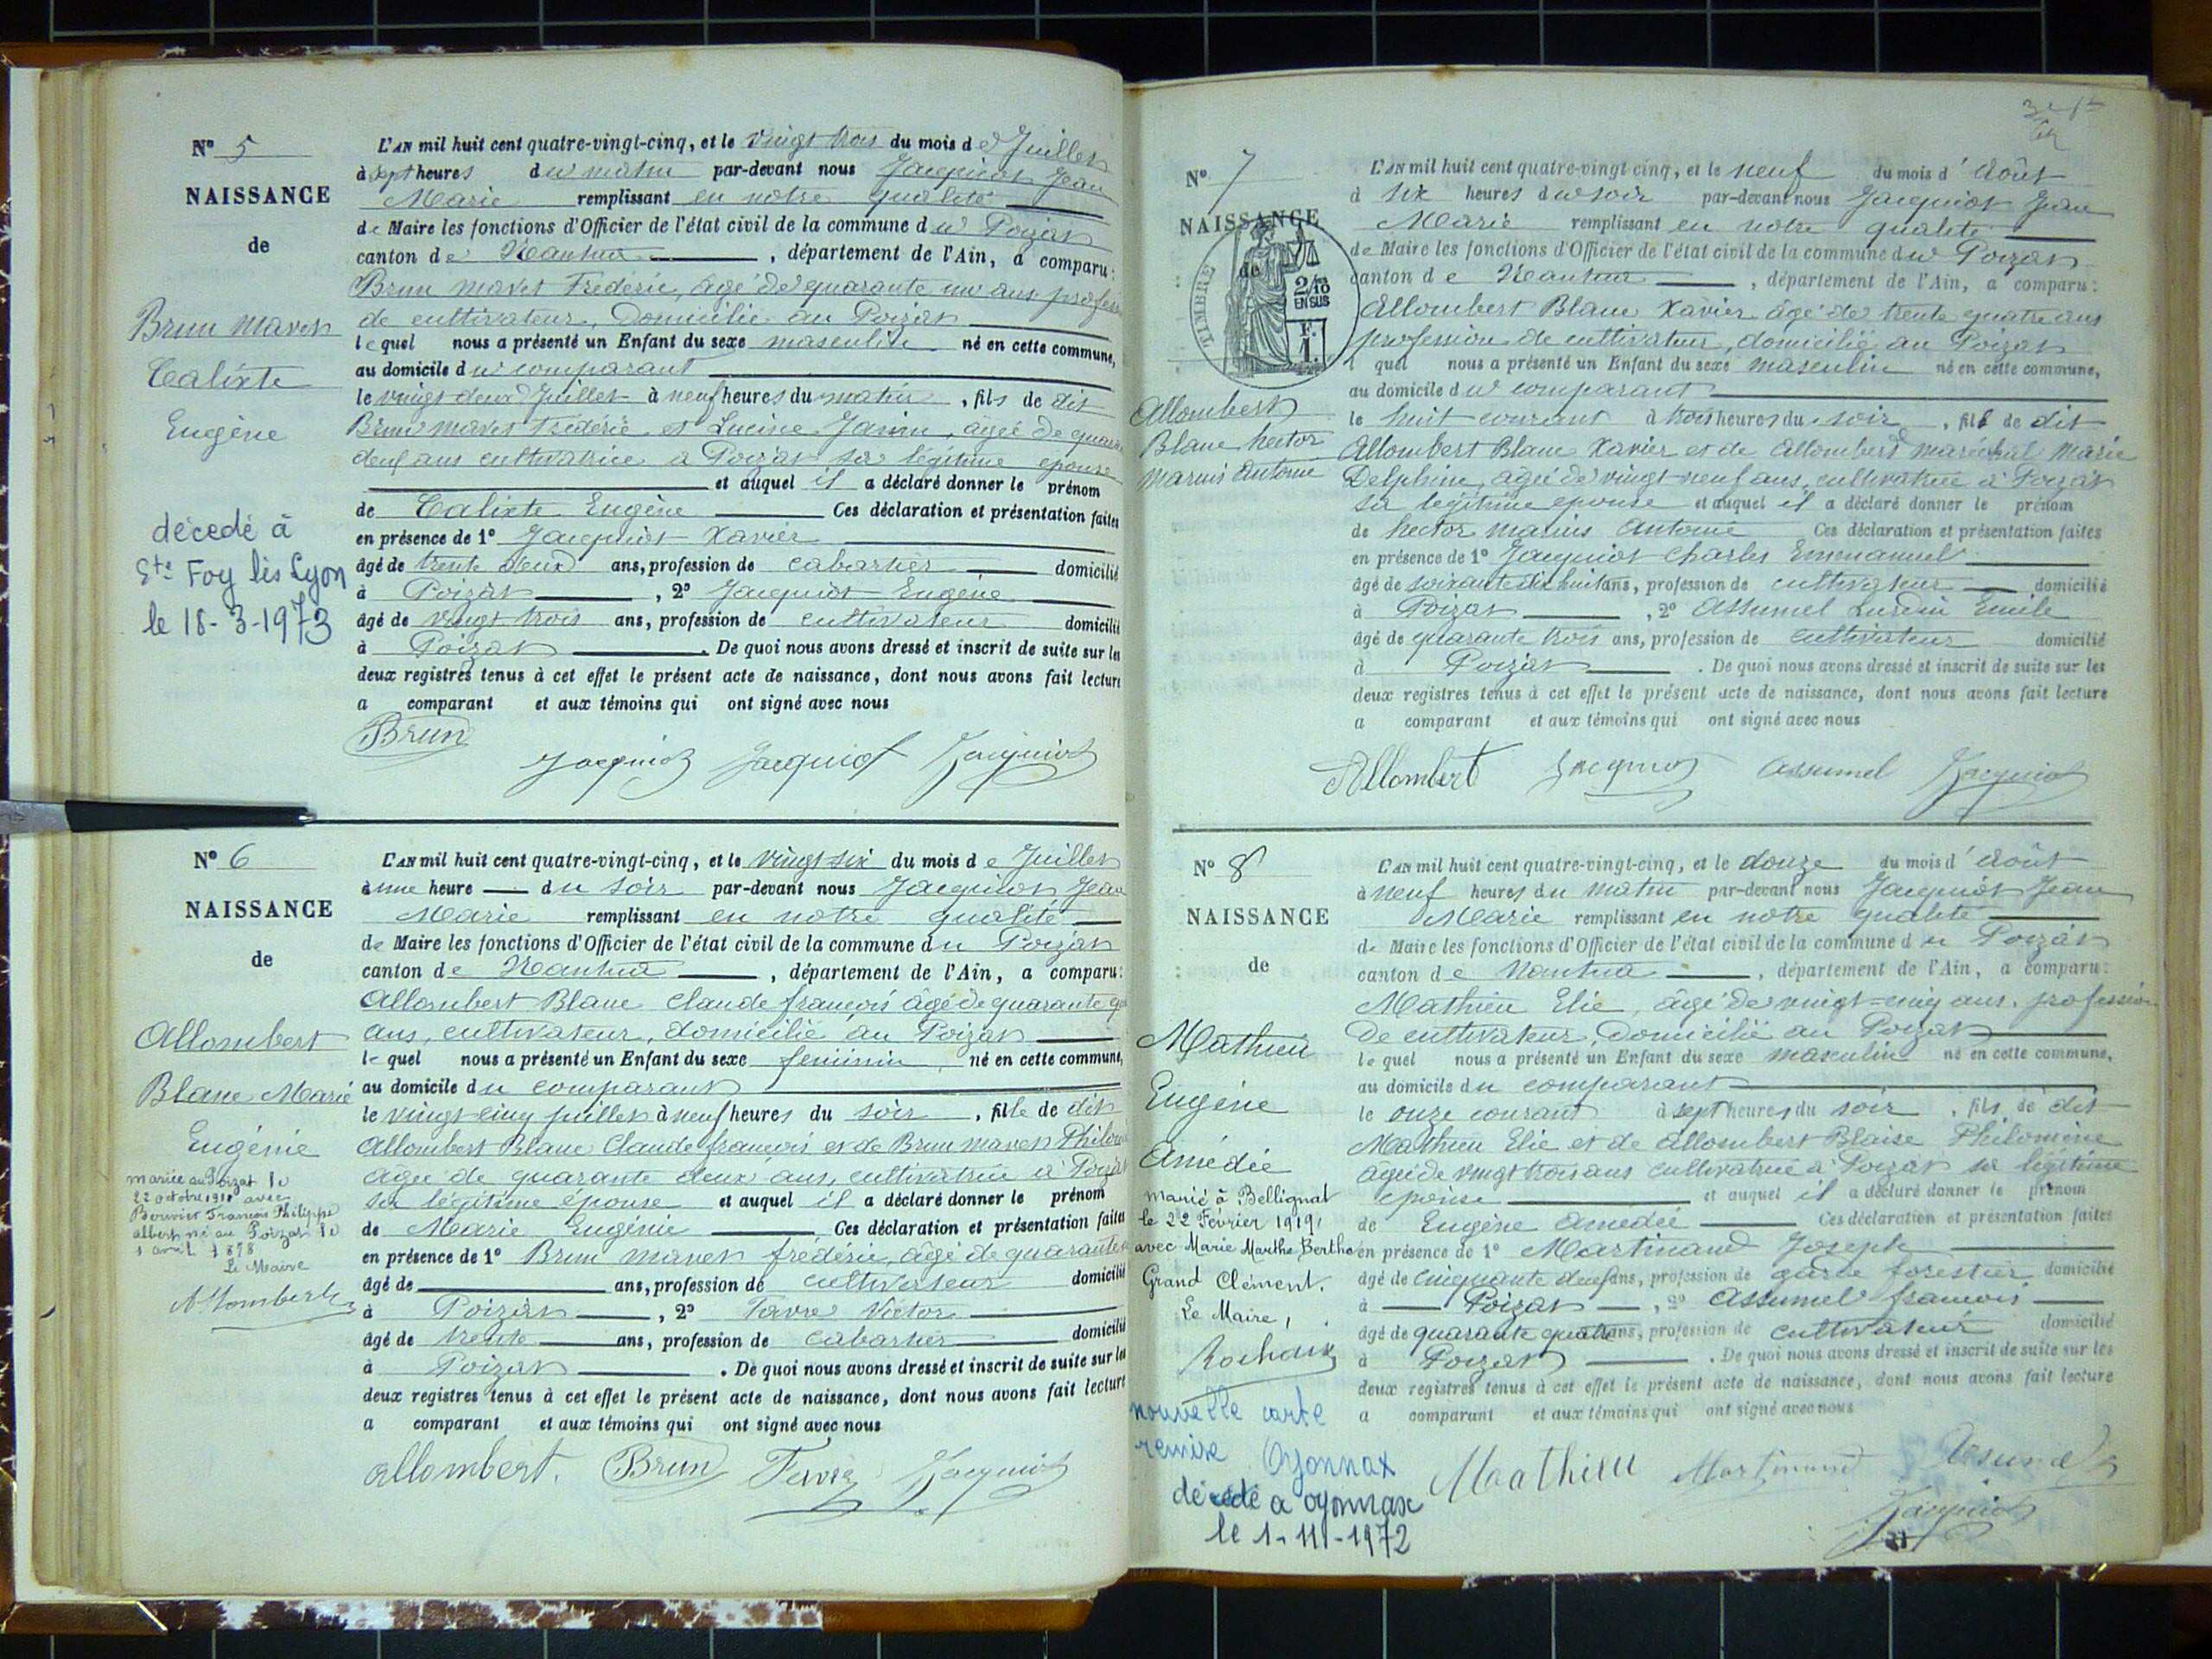 N° 5
NAISSANCE
de
Brun Maret
Calixte
Eugène
décédé à
Ste Foy lès Lyon
le 18-3-1973
L'AN mil huit cent quatre-vingt-cinq, et le vingt trois du mois de Juillet
à sept heures du matin par-devant nous Jacquiot Jean
Marie remplissant en notre qualité
de Maire les fonctions d'Officier de l'état civil de la commune du Poizat
canton de Nantua, département de l'Ain, a comparu :
Brun maret Frédéric, âgé de quarante un ans profess
de cultivateur, Domicilié au Poizat
lequel nous a présenté un Enfant du sexe masculin né en cette commune,
au domicile du comparant
le vingt deux Juillet à neuf heures du matin, fils de dit
Brun maret Frédéric et Lucine Janin, âgée de quara
deux ans cultivatrice à Poizat sa légitime épouse
et auquel il a déclaré donner le prénom
de Calixte Eugène Ces déclaration et présentation faites
en présence de 1° Jacquiot Xavier
âgé de trente deux ans, profession de cabartier domicilié
à Poizat, 2° Jacquiot Eugène
âgé de vingt trois ans, profession de cultivateur domicilié
à Poizat. De quoi nous avons dressé et inscrit de suite sur les
deux registres tenus à cet effet le présent acte de naissance, dont nous avons fait lecture
a comparant et aux témoins qui ont signé avec nous
Brun Jacquiot Jacquiot Jacquiot
N° 6
NAISSANCE
de
Allombert
Blanc Marie
Eugénie
mariée au Poizat le
22 octobre 1910 avec
Bouvier François Philippe
albert né au Poizat le
1 avril 1878
Le Maire
Allombert
L'AN mil huit cent quatre-vingt-cinq, et le vingt six du mois de Juillet
à une heure du soir par-devant nous Jacquiot Jean
Marie remplissant en notre qualité
de Maire les fonctions d'Officier de l'état civil de la commune du Poizat
canton de Nantua, département de l'Ain, a comparu :
Allombert Blanc Claude françois âgé de quarante
ans, cultivateur, domicilié au Poizat
lequel nous a présenté un Enfant du sexe feminin, né en cette commune,
au domicile du comparant
le vingt cinq juillet à neuf heures du soir, fille de dit
Allombert Blanc Claude françois et de Brun maret Philom
âgée de quarante deux ans, cultivatrice à Poizat
sa légitime épouse et auquel il a déclaré donner le prénom
de Marie Eugénie Ces déclaration et présentation faites
en présence de 1° Brun maret frédéric, âgé de quarante
âgé de ans, profession de cultivateur domicilié
à Poizat, 2° Favre Victor
âgé de trente ans, profession de cabartier domicilié
à Poizat. De quoi nous avons dressé et inscrit de suite sur les
deux registres tenus à cet effet le présent acte de naissance, dont nous avons fait lecture
a comparant et aux témoins qui ont signé avec nous
allombert. Brun Favre Jacquiot
N° 7
NAISSANCE
de
TIMBRE
2/10
EN SUS
F.
1.
Allombert
Blanc hector
Marius Antoine
L'AN mil huit cent quatre-vingt-cinq, et le neuf du mois d'Août
à six heures du soir par-devant nous Jacquiot Jean
Marie remplissant en notre qualité
de Maire les fonctions d'Officier de l'état civil de la commune du Poizat
canton de Nantua, département de l'Ain, a comparu :
Allombert Blanc Xavier âgé de trente quatre ans
profession de cultivateur, domicilié au Poizat
l quel nous a présenté un Enfant du sexe masculin né en cette commune,
au domicile du comparant
le huit courant à trois heures du soir, fils de dit
Allombert Blanc Xavier et de Allombert maréchal Marie
Delphine, âgée de vingt neuf ans, cultivatrice à Poizat
sa légitime épouse et auquel il a déclaré donner le prénom
de hector marius Antoine Ces déclaration et présentation faites
en présence de 1° Jacquiot Charles Emmanuel
âgé de soixante dix huit ans, profession de cultivateur domicilié
à Poizat, 2° Assumel Lurdin Emile
âgé de quarante trois ans, profession de cultivateur domicilié
à Poizat. De quoi nous avons dressé et inscrit de suite sur les
deux registres tenus à cet effet le présent acte de naissance, dont nous avons fait lecture
a comparant et aux témoins qui ont signé avec nous
Allombert Jacquiot Assumel Jacquiot
N° 8
NAISSANCE
de
Mathieu
Eugène
Amédée
marié à Bellignat
le 22 Février 1919,
avec Marie Marthe Berthe
Grand Clément.
Le Maire,
Rochaix
nouvelle carte
remise Oyonnax
décédé a oyonnax
le 1-11-1972
L'AN mil huit cent quatre-vingt-cinq, et le douze du mois d'Août
à neuf heures du matin par-devant nous Jacquiot Jean
Marie remplissant en notre qualité
de Maire les fonctions d'Officier de l'état civil de la commune du Poizat
canton de Nantua, département de l'Ain, a comparu :
Mathieu Elie, âgé de vingt-cinq ans, profession
de cultivateur, Domicilié au Poizat
lequel nous a présenté un Enfant du sexe masculin né en cette commune,
au domicile du comparant
le onze courant à sept heures du soir, fils de dit
Mathieu Elie et de Allombert Blaise Philomène
âgée de vingt trois ans cultivatrice à Poizat sa légitime
épouse et auquel il a déclaré donner le prénom
de Eugène Amédée Ces déclaration et présentation faites
en présence de 1° Martinand Joseph
âgé de cinquante deux ans, profession de garde forestier domicilié
à Poizat, 2° Assumel françois
âgé de quarante quatre ans, profession de cultivateur domicilié
à Poizat. De quoi nous avons dressé et inscrit de suite sur les
deux registres tenus à cet effet le présent acte de naissance, dont nous avons fait lecture
a comparant et aux témoins qui ont signé avec nous
Maathieu Martinand Assumel
Jacquiot